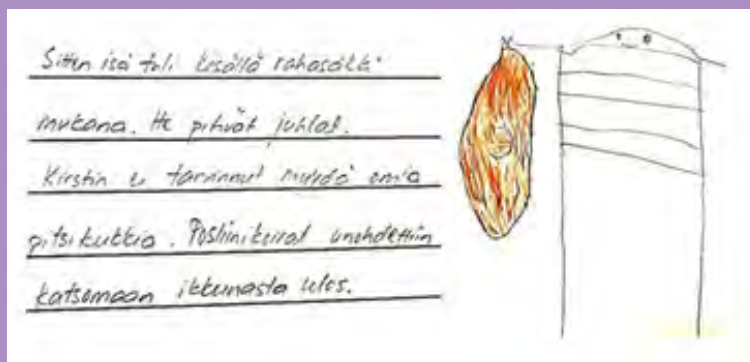 Sitten isä tuli kesällä rahasäkki
mukana. He pitivät juhlat.
Kirstin ei tarvinnut myydä omia
pitsikukkia. Posliinikoirat unohdettiin
katsomaan ikkunasta ulos.